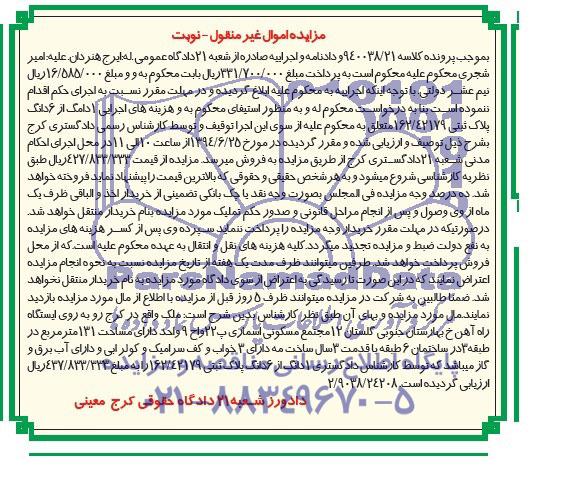 مزایده اموال غیر منقول - نوبت
بموجب پرونده کلاسه 940038/21 و دادنامه و اجراییه صادره از شعبه 21 دادگاه عمومی. له: ایرج هنردان. علیه: امیر
شجری محکوم علیه محکوم است به پرداخت مبلغ 331/700/000 ریال بابت محکوم به و و مبلغ 16/585/000 ریال
نیم عشر دولتی. با توجه اینکه اجراییه به محکوم علیه ابلاغ گردیده و در مهلت مقرر نسبت به اجرای حکم اقدام
ننموده است بنا به درخواست محکوم له و به منظور استیفای محکوم به و هزینه های اجرایی 1دامگ از 6دانگ
پلاک ثبتی 163/42179 متعلق به محکوم علیه از سوی این اجرا توقیف و توسط کارشناس رسمی دادگستری کرج
بشرح ذیل توصیف و ارزیابی شده و مقرر گردیده در مورخ 1394/6/25 از ساعت 10 الی 11 در محل اجرای احکام
مدنی شعبه 21 دادگستری کرج از طریق مزایده به فروش میرسد. مزایده از قیمت 437/833/333 ریال طبق
نظریه کارشناسی شروع میشود و به هر شخص حقیقی و حقوقی که بالاترین قیمت را پیشنهاد نماید فروخته خواهد
شد. ده درصد وجه مزایده فی المجلس بصورت وجه نقد یا چک بانکی تضمینی از خریدار اخذ و الباقی ظرف یک
ماه از وی وصول و پس از انجام مراحل قانونی و صدور حکم تملیک مورد مزایده بنام خریدار منتقل خواهد شد.
درصورتیکه در مهلت مقرر خریدار وجه مزایده را پرداخت ننماید سپرده وی پس از کسر هزینه های مزایده
به نفع دولت ضبط و مزایده تجدید میگردد. کلیه هزینه های نقل و انتقال به عهده محکوم علیه است. که از محل
فروش پرداخت خواهد شد. طرفین میتوانند ظرف مدت یک هفته از تاریخ مزایده نسبت به نحوه انجام مزایده
اعتراض نمایند که در این صورت تا رسیدگی به اعتراض از سوی دادگاه مورد مزایده به نام خریدار منتقل نخواهد
شد. ضمنا طالبین به شرکت در مزایده میتوانند ظرف 5 روز قبل از مزایده با اطلاع از مال مورد مزایده بازدید
نمایند. مال مورد مزایده و بهای آن طبق نظر کارشناس بدین شرح است: ملک واقع در کرج رو به روی ایستگاه
راه آهن خ بهارستان جنوبی گلستان 12 مجتمع مسکونی اسماری پ22 واح 9 واحد دارای مساحت 131 متر مربع در
طبقه 3 در ساختمان 6 طبقه با قدمت 3سال ساخت مه دارای 3 خواب و کف سرامیک و کولر ابی و دارای آب برق و
گاز میباشد که توسط کارشناس دادگستری 1دانگ از 6دانگ پلاک ثبتی 163/42179 را به مبلغ 437/833/333 ریال
ارزیابی گردیده است. 2/9038/24208
دادورز شعبه 21 دادگاه حقوقی کرج معینی
ParsNamadData
پایگاه اطلاع رسانی مناقصه و مزایده
021-88349670-5